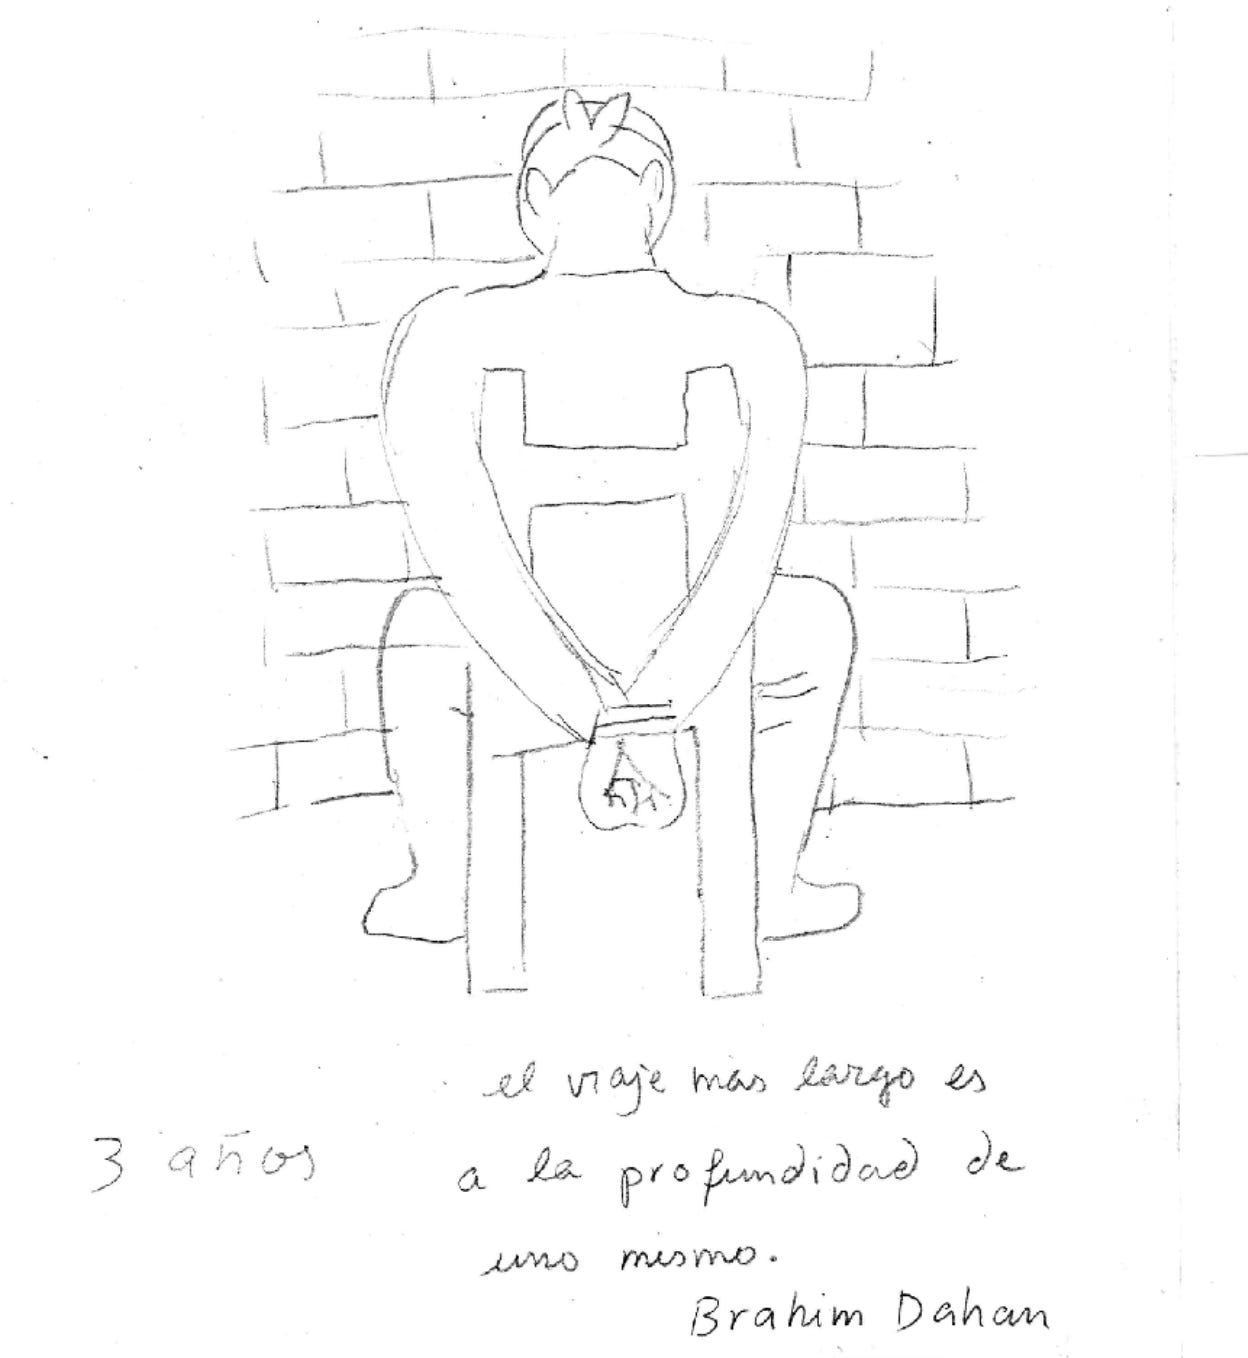 el viaje mas largo es
3 años
a la profundidad de
uno mismo.
Brahim Dahan